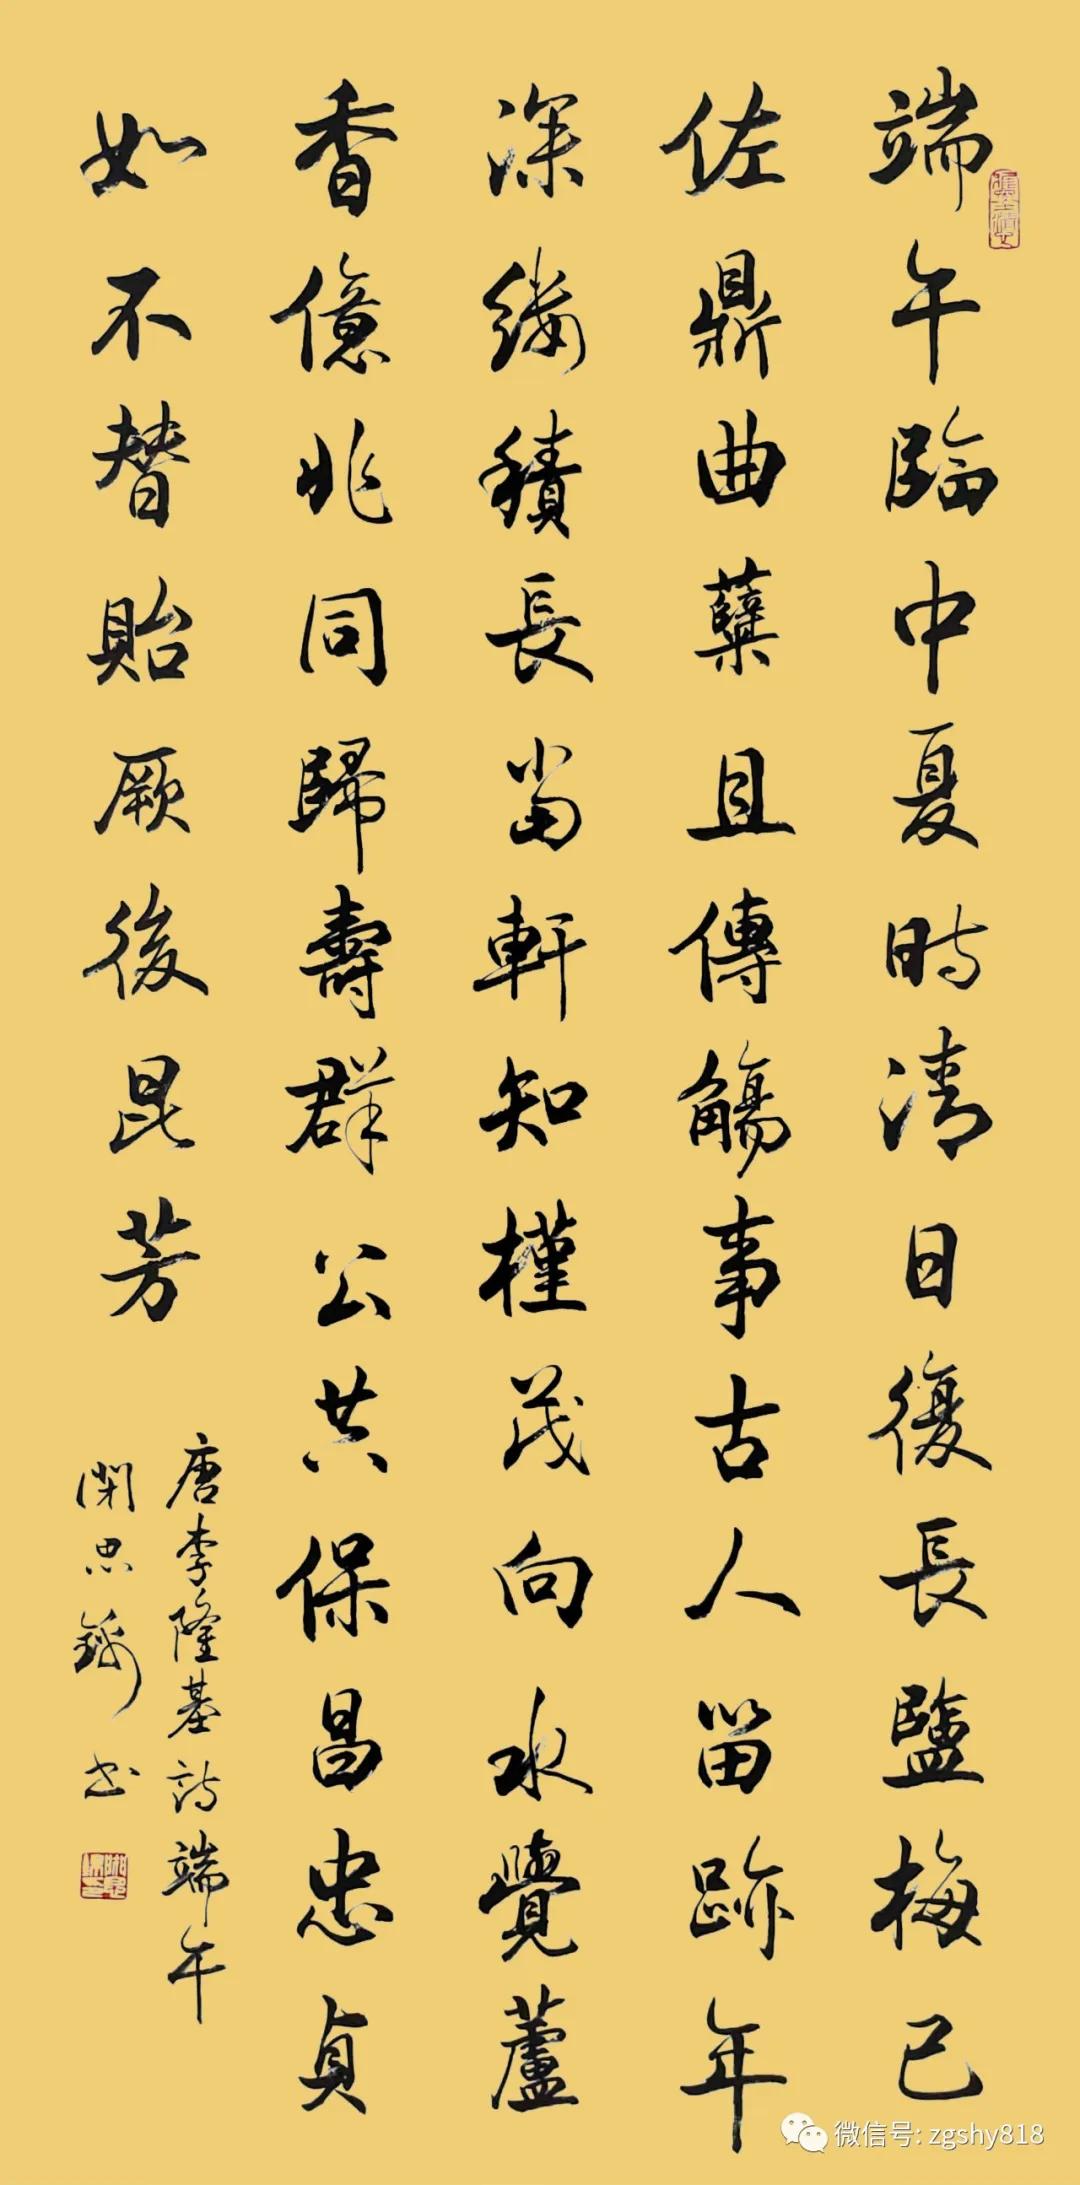 端午臨中夏時清日復長鹽梅已
佐鼎曲糵且傳觴事古人留跡年
深縷積長當軒知槿茂向水覺蘆
香億兆同歸壽群公共保昌忠貞
如不替貽厥後昆芳
唐李隆基詩端午
思 书
微信号: zgshy818